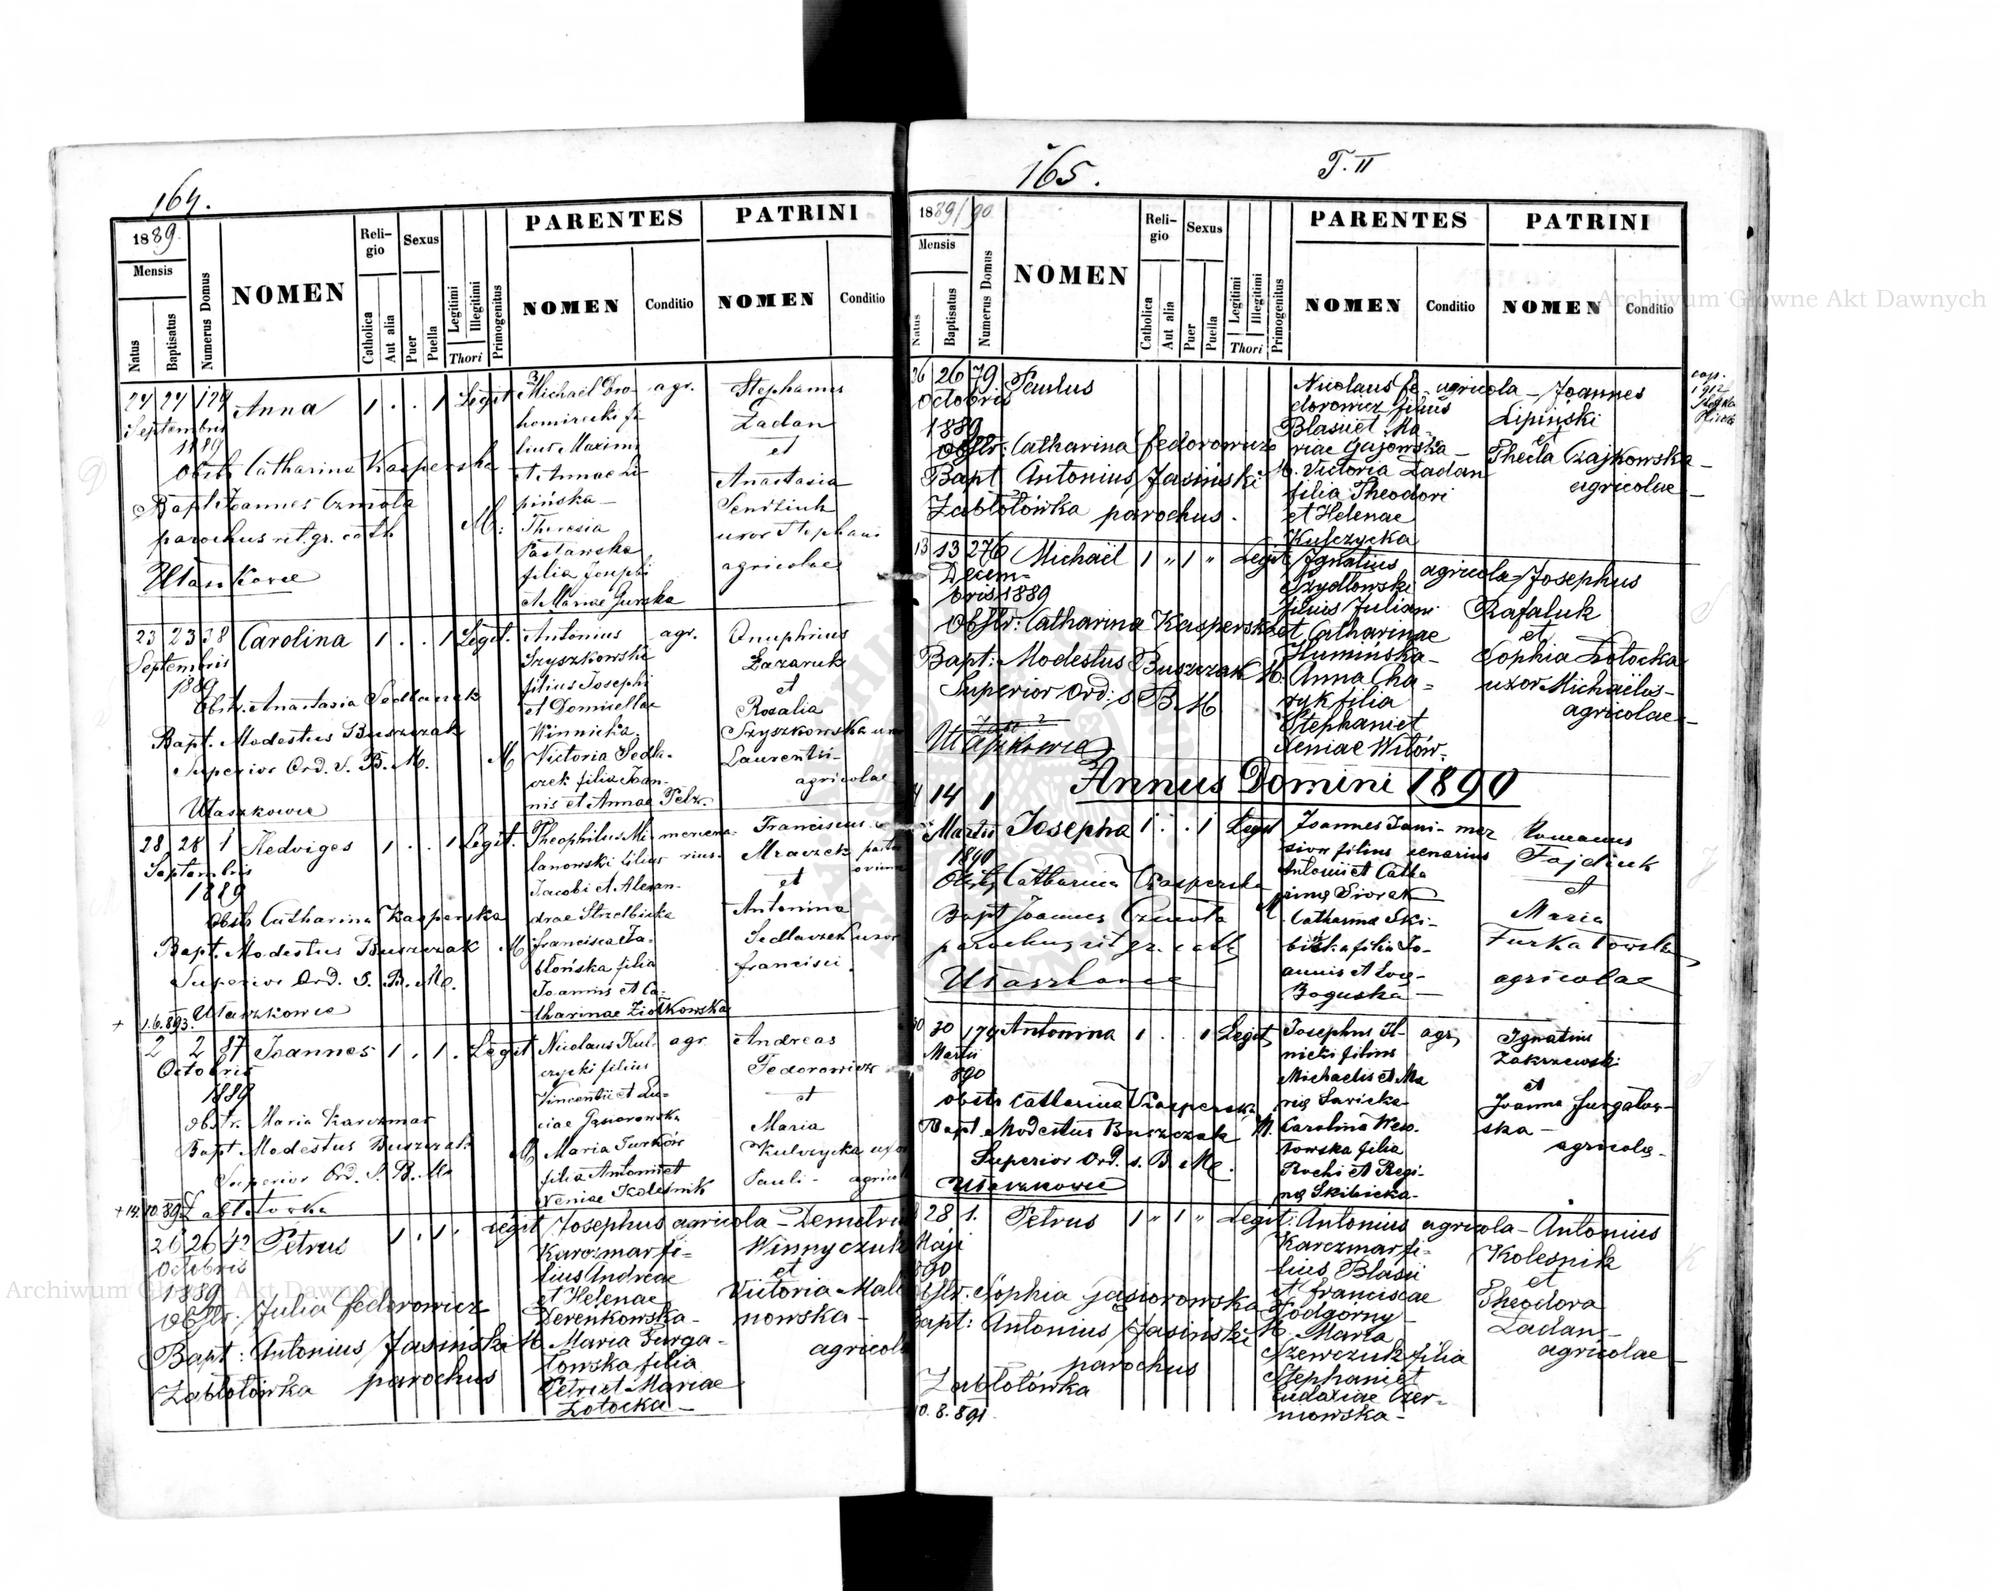 164.
1889.
Mensis
Natus
Baptisatus
Numerus Domus
NOMEN
Religio
Catholica
Aut alia
Sexus
Puer
Puella
Legitimi
Illegitimi
Thori
Primogenitus
PARENTES
NOMEN
Conditio
PATRINI
NOMEN
Conditio
24 24 124 Anna 1 . . 1 Legit
Septembris
1889
Obstr Catharina Kasperska
Bapt. Joannes Czmola
parochus rit. gr. cath
Ułaszkowce
Michael Dro-
homirecki fi-
lius Maximi
et Annae Li-
pińska
M: Theresia
Pastawska
filia Josephi
et Mariae Gurska
agr.
Stephanus
Zadan
et
Anastasia
Sendziuk
uxor Stephani
agricolae
23 23 38 Carolina 1 . . 1 Legit.
Septembris
1889
Obstr. Anastasia Sedlaczek
Bapt. Modestus Buszczak
Superior Ord. S. B. M.
Ułaszkowce
Antonius
Szyszkowski
filius Josephi
et Domicellae
Winnicka.
M Victoria Sedla-
czek filia Joan-
nis et Annae Pelz.
agr.
Onuphrius
Łazaruk
et
Rozalia
Szyszkowska uxor
Laurentii
agricolae
28 28 1 Hedviges 1 . . 1 Legit.
Septembris
1889
Obstr Catharina Kasperska
Bapt. Modestus Buszczak
Superior Ord. S. B. M.
Ułaszkowce
Theophilus Mi-
lanowski filius
Jacobi et Alexan-
drae Strzelbicka
M Francisca Ja-
błońska filia
Joannis et Ca-
tharinae Ziołkowska
mercena-
rius.
Franciscus
Mraczek
et
Antonina
Sedlaczek uxor
Francisci.
+ 1.6.893.
2 2 87 Joannes 1 . 1 . Legit
Octobris
1889
Obstr. Maria Karczmar
Bapt Modestus Buszczak
Superior Ord. S. B. M
Zabłotówka
Nicolaus Kul-
czycki filius
Vincentii et Lu-
ciae Gąsiorowska
M Maria Turkow
filia Antonii et
Xeniae Kolesnik
agr.
Andreas
Fedorowicz
et
Maria
Kulczycka uxor
Pauli - agricolae
+ 14.10.89
26 26 42 Petrus 1 . 1 . Legit
Octobris
1889
Obstr. Julia Fedorowicz
Bapt: Antonius Jasiński
Zabłotówka parochus
Josephus
Karczmar fi-
lius Andreae
et Helenae
Derenkowska-
M. Maria Furga-
łowska filia
Petri et Mariae
Łotocka-
agricola
Demetrius
Winnyczuk
et
Victoria Mali
nowska-
agricolae
165. T. II
1889/90
Mensis
Natus
Baptisatus
Numerus Domus
NOMEN
Religio
Catholica
Aut alia
Sexus
Puer
Puella
Legitimi
Illegitimi
Thori
Primogenitus
PARENTES
NOMEN
Conditio
PATRINI
NOMEN
Conditio
26 26 79. Paulus
Octobris
1889
Obstr: Catharina Fedorowicz
Bapt Antonius Jasiński
Zabłotówka parochus.
Nicolaus Fe-
dorowicz filius
Blasii et Ma-
riae Gajowska-
M. Victoria Zadan
filia Theodori
et Helenae
Kulczycka
agricola
Joannes
Lipiński
et
Thecla Czajkowska
agricolae-
cop.
1912
13 13 276 Michaël 1 " 1 " Legit
Decem-
bris 1889
Obstr: Catharina Kasperska
Bapt: Modestus Buszczak
Superior Ord: s B M
Ułaszkowce
Ignatius
Szydłowski
filius Juliani
et Catharinae
Humińska-
M. Anna Cha-
ryk filia
Stephani et
Xeniae Witów.
agricola
Josephus
Rafaluk
et
Sophia Łotocka
uxor Michaëlis-
agricolae-
Annus Domini 1890
14 14 1 Josepha 1 . . 1 Legit
Martii
1890
Obstr Catharina Kasperska
Bapt Joannes Czmola
parochus rit gr. cath
Ułaszkowce
Joannes Jani-
siow filius
Antonii et Catha
rinę Siorak
M. Catharina Ski-
bicka filia Jo-
annis et Lucę-
Boguska-
mer
cenarius
Romanus
Fajdiuk
et
Maria
Furkałowska
agricolae
30 30 174 Antonina 1 . . 1 Legit
Martii
890
obstr Catharina Kasperska
Bapt Modestus Buszczak
Superior Ord. s. B. M.
Ułaszkowce
Josephus Il-
nicki filius
Michaelis et Ma
rię Savicka-
M. Carolina Weso-
łowska filia
Rochi et Regi-
nę Skibicka-
agr.
Ignatius
Zakrzewski
et
Joanna Furgałow-
ska-
agricolę-
28 1. Petrus 1 " 1 " Legit:
Maji
890
Obstr. Sophia Gąsiorowska
Bapt: Antonius Jasiński
parochus
Zabłotówka
Antonius
Karczmar fi-
lius Blasii
et Franciscae
Podgórny-
M. Maria
Szewczuk filia
Stephani et
Eudoxiae Czer-
niowska-
agricola
Antonius
Kolesnik
et
Theodora
Zadan-
agricolae-
10.8.891.
Archiwum Główne Akt Dawnych
Archiwum Główne Akt Dawnych